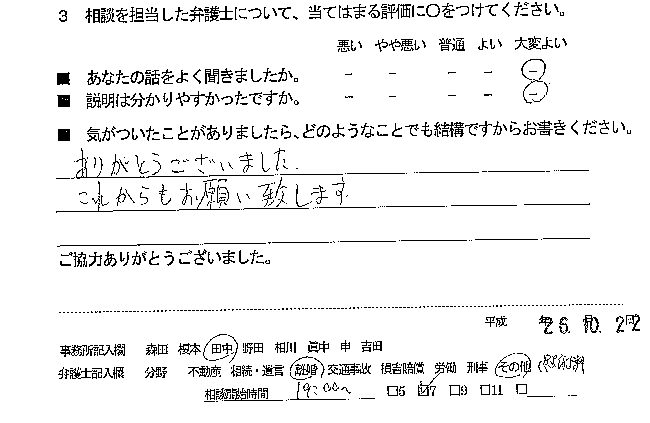 3 相談を担当した弁護士について、当てはまる評価に○をつけてください。
悪い やや悪い 普通 よい 大変よい
■ あなたの話をよく聞きましたか。 － － － － －
■ 説明は分かりやすかったですか。 － － － － －
■ 気がついたことがありましたら、どのようなことでも結構ですからお書きください。
ありがとうございました.
これからもお願い致します
ご協力ありがとうございました。
平成 年 26.10.22
事務所記入欄 森田 榎本 田中 野田 相川 眞中 申 吉田
弁護士記入欄 分野 不動産 相続・遺言 離婚 交通事故 損害賠償 労働 刑事 その他（
相談開始時間 19:00~ □5 ☑7 □9 □11 □